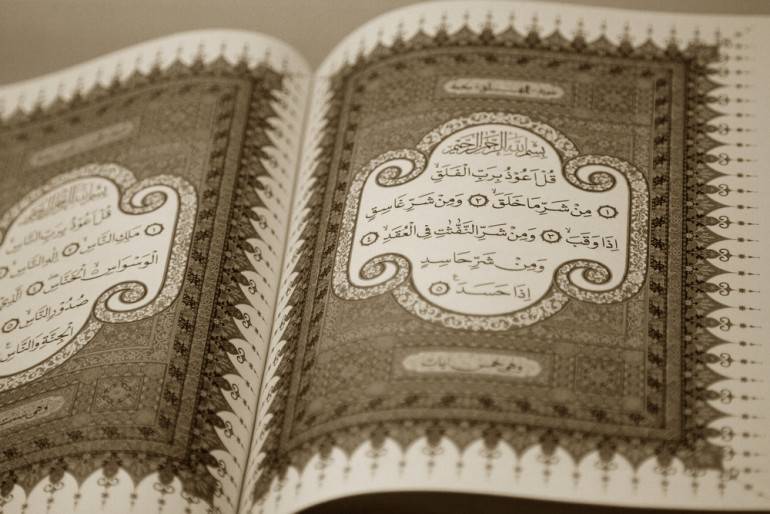 بِسْمِ اللَّهِ الرَّحْمَٰنِ الرَّحِيمِ
قُلْ أَعُوذُ بِرَبِّ الْفَلَقِ
١ مِنْ شَرِّ مَا خَلَقَ ٢ وَمِنْ شَرِّ غَاسِقٍ
إِذَا وَقَبَ ٣ وَمِنْ شَرِّ النَّفَّٰثَٰتِ فِي الْعُقَدِ ٤
وَمِنْ شَرِّ حَاسِدٍ
إِذَا حَسَدَ ٥
وهي خمس آيات
بِسْمِ اللَّهِ الرَّحْمَٰنِ الرَّحِيمِ
قُلْ أَعُوذُ بِرَبِّ النَّاسِ
١ مَلِكِ النَّاسِ ٢ إِلَٰهِ النَّاسِ
الْوَسْوَاسِ الْخَنَّاسِ ٤ الَّذِي
صُدُورِ النَّاسِ ٥
الْجِنَّةِ وَالنَّاسِ